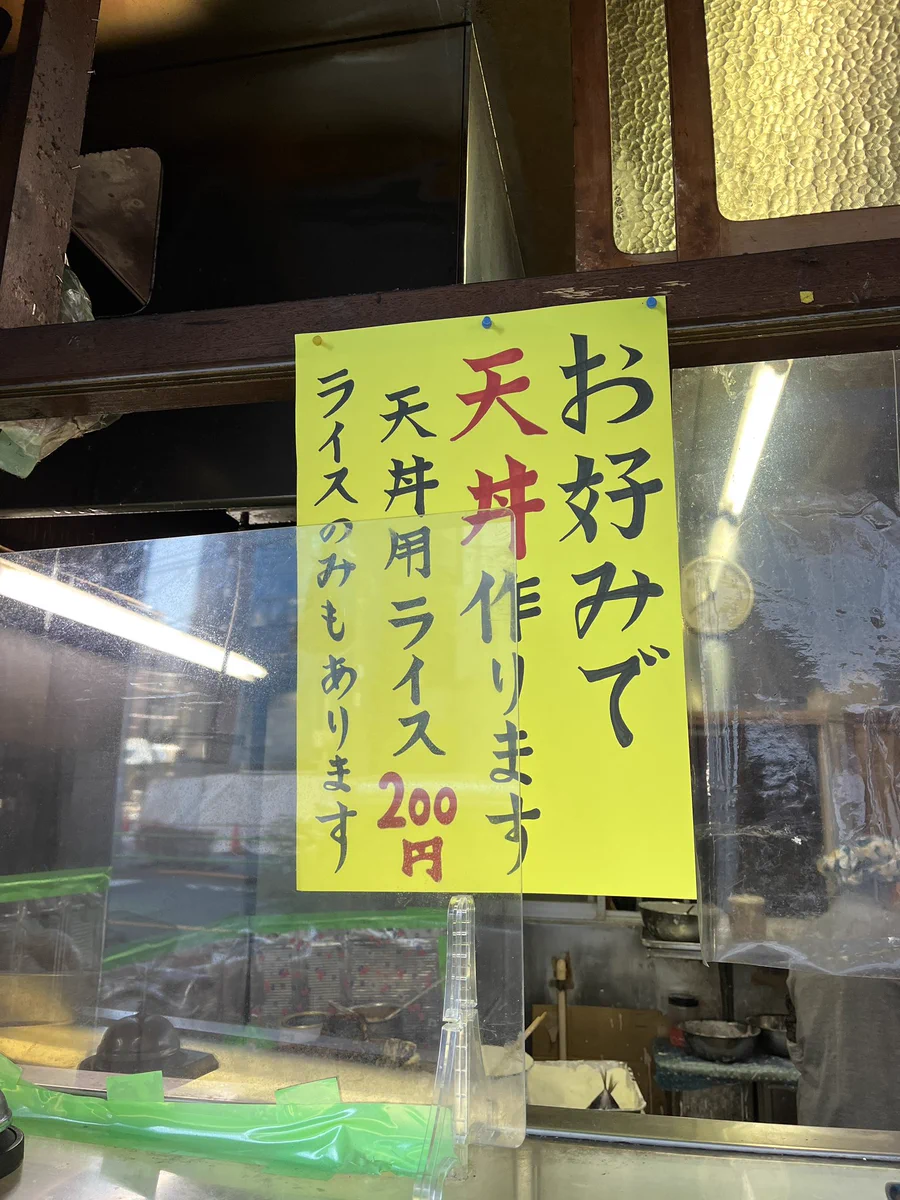 お好みで
天丼作ります
天丼用ライス200円
ライスのみもあります